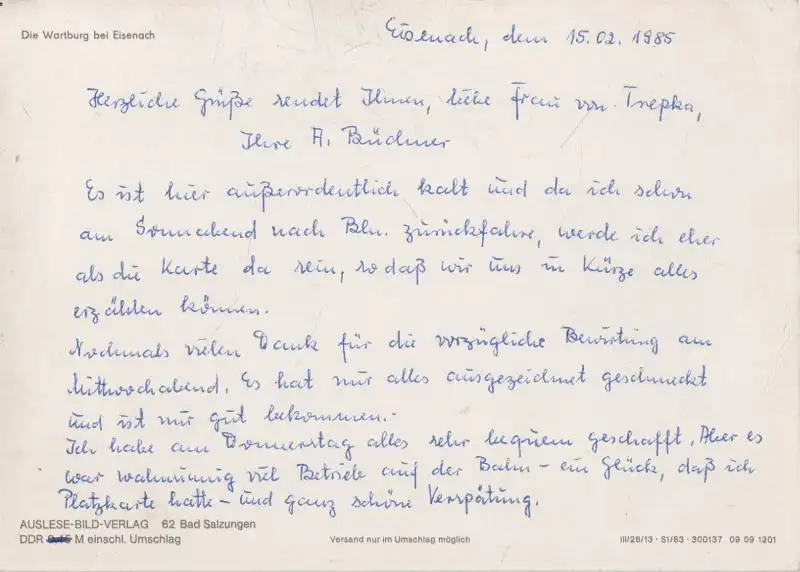 Die Wartburg bei Eisenach
Eisenach, dem 15.02.1985
Herzliche Grüße sendet Ihnen, liebe Frau von Trepka,
Ihre A. Büchner
Es ist hier außerordentlich kalt und da ich schon
am Sonnabend nach Bln. zurückfahre, werde ich eher
als die Karte da sein, sodaß wir uns in Kürze alles
erzählen können.
Nochmals vielen Dank für die vorzügliche Bewirtung am
Mittwochabend. Es hat mir alles ausgezeichnet geschmeckt
und ist mir gut bekommen.-
Ich habe am Donnerstag alles sehr bequem geschafft. Aber es
war wahnsinnig viel Betrieb auf der Bahn – ein Glück, daß ich
Platzkarte hatte – und ganz schöne Verspätung.
AUSLESE-BILD-VERLAG 62 Bad Salzungen
DDR M einschl. Umschlag
Versand nur im Umschlag möglich
III/26/13 · S1/83 · 300137 09 09 1201